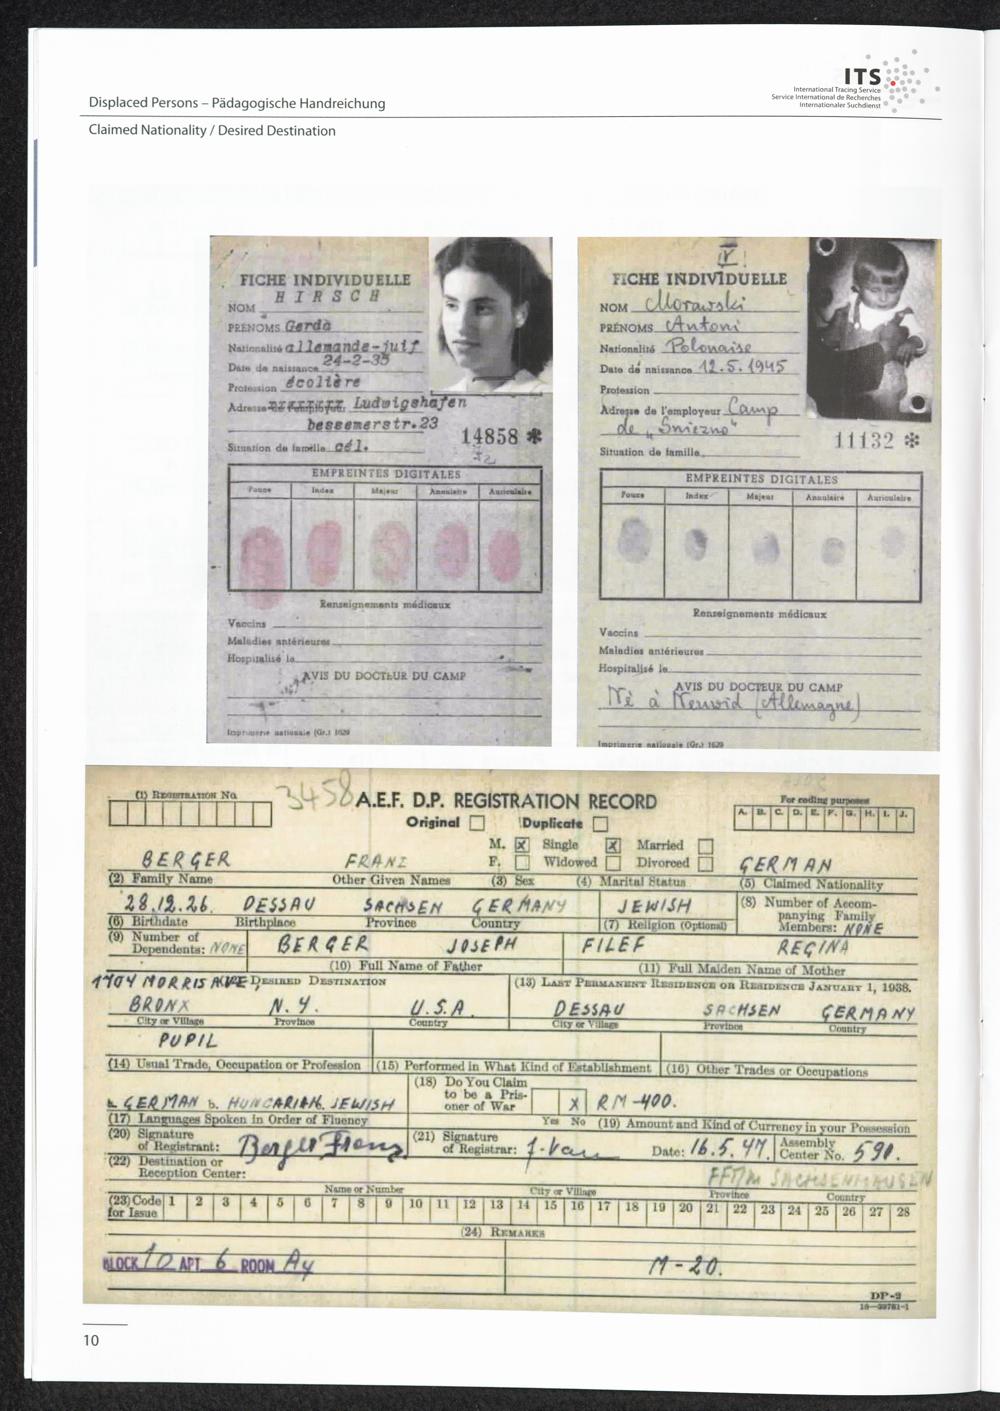 Displaced Persons – Pädagogische Handreichung
ITS
International Tracing Service
Service International de Recherches
Internationaler Suchdienst
Claimed Nationality / Desired Destination
FICHE INDIVIDUELLE
NOM HIRSCH
PRÉNOMS Gerda
Nationalité allemande-juif
Date de naissance 24-2-35
Profession écolière
Adresse de l'employeur Ludwigshafen
bessemerstr.23
14858 *
Situation de famille cél.
EMPREINTES DIGITALES
Pouce Index Majeur Annulaire Auriculaire
Renseignements médicaux
Vaccins
Maladies antérieures
Hospitalisé le
AVIS DU DOCTEUR DU CAMP
Imprimerie nationale (Gr.) 1629
IV!
FICHE INDIVIDUELLE
NOM Morawski
PRÉNOMS Antoni
Nationalité Polonaise
Date de naissance 12.5.1945
Profession
Adresse de l'employeur Camp
de „Gniezno"
11132 *
Situation de famille
EMPREINTES DIGITALES
Pouce Index Majeur Annulaire Auriculaire
Renseignements médicaux
Vaccins
Maladies antérieures
Hospitalisé le
AVIS DU DOCTEUR DU CAMP
Né à Neuwid (Allemagne)
Imprimerie nationale (Gr.) 1629
(1) REGISTRATION No.
3458
A.E.F. D.P. REGISTRATION RECORD
For coding purposes
Original Duplicate
A. B. C. D. E. F. G. H. I. J.
M. X Single X Married
F. Widowed Divorced
BERGER FRANZ GERMAN
(2) Family Name Other Given Names (3) Sex (4) Marital Status (5) Claimed Nationality
28.12.26. DESSAU SACHSEN GERMANY JEWISH
(6) Birthdate Birthplace Province Country (7) Religion (Optional)
(8) Number of Accompanying Family Members: NONE
(9) Number of Dependents: NONE
BERGER JOSEPH FILEF REGINA
(10) Full Name of Father (11) Full Maiden Name of Mother
1704 MORRIS AVE DESIRED DESTINATION
(13) LAST PERMANENT RESIDENCE OR RESIDENCE JANUARY 1, 1938.
BRONX N.Y. U.S.A. DESSAU SACHSEN GERMANY
City or Village Province Country City or Village Province Country
PUPIL
(14) Usual Trade, Occupation or Profession (15) Performed in What Kind of Establishment (16) Other Trades or Occupations
a. GERMAN b. HUNGARIAN. JEWISH
(17) Languages Spoken in Order of Fluency
(18) Do You Claim to be a Prisoner of War
X
Yes No
RM-400.
(19) Amount and Kind of Currency in your Possession
(20) Signature of Registrant: Berger Franz
(21) Signature of Registrar:
Date: 16.5.47. Assembly Center No. 591.
(22) Destination or Reception Center:
SACHSENHAUSEN
Name or Number City or Village Province Country
(23) Code for Issue 1 2 3 4 5 6 7 8 9 10 11 12 13 14 15 16 17 18 19 20 21 22 23 24 25 26 27 28
(24) REMARKS
BLOCK 10 APT 6 ROOM
M-20.
DP-2
16—39781-1
10